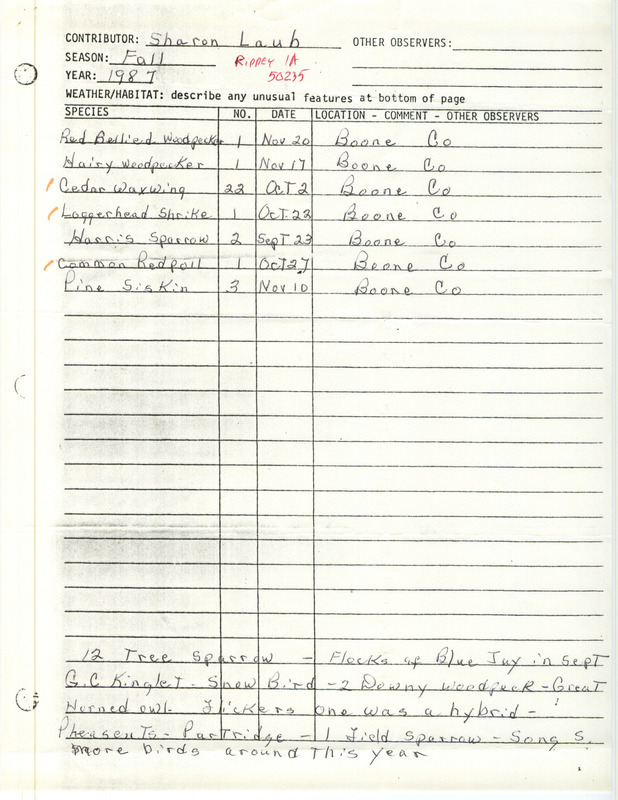 CONTRIBUTOR: Sharon Laub OTHER OBSERVERS:
SEASON: Fall Rippey IA
YEAR: 1987 50235
WEATHER/HABITAT: describe any unusual features at bottom of page
SPECIES NO. DATE LOCATION - COMMENT - OTHER OBSERVERS
Red Bellied Woodpecker 1 Nov 20 Boone Co
Hairy Woodpecker 1 Nov 17 Boone Co
Cedar Waxwing 22 Oct 2 Boone Co
Loggerhead Shrike 1 Oct 22 Boone Co
Harris Sparrow 2 Sept 23 Boone Co
Common Redpoll 1 Oct 27 Boone Co
Pine Siskin 3 Nov 10 Boone Co
12 Tree Sparrow - Flocks of Blue Jay in Sept
G.C Kinglet - Snow Bird - 2 Downy Woodpeck - Great
Horned owl - Flickers one was a hybrid -
Pheasents - Partridge - 1 Field Sparrow - Song S.
more birds around This year